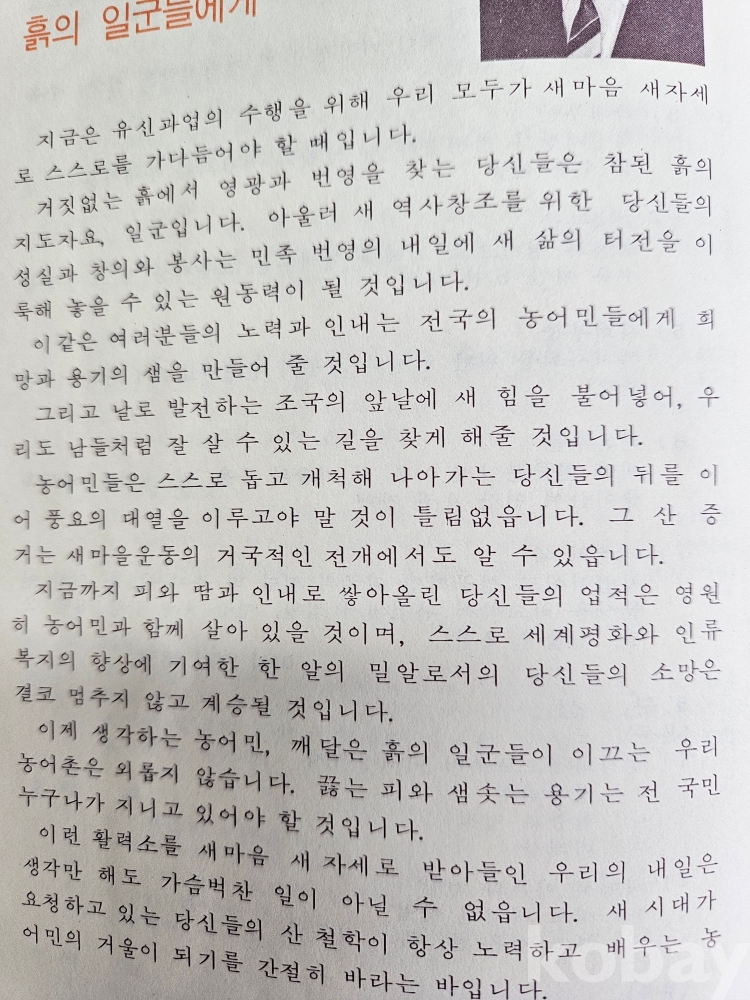 흙의 일군들에게
지금은 유신과업의 수행을 위해 우리 모두가 새마음 새자세
로 스스로를 가다듬어야 할 때입니다.
거짓없는 흙에서 영광과 번영을 찾는 당신들은 참된 흙의
지도자요, 일군입니다. 아울러 새 역사창조를 위한 당신들의
성실과 창의와 봉사는 민족 번영의 내일에 새 삶의 터전을 이
룩해 놓을 수 있는 원동력이 될 것입니다.
이같은 여러분들의 노력과 인내는 전국의 농어민들에게 희
망과 용기의 샘을 만들어 줄 것입니다.
그리고 날로 발전하는 조국의 앞날에 새 힘을 불어넣어, 우
리도 남들처럼 잘 살 수 있는 길을 찾게 해줄 것입니다.
농어민들은 스스로 돕고 개척해 나아가는 당신들의 뒤를 이
어 풍요의 대열을 이루고야 말 것이 틀림없읍니다. 그 산 증
거는 새마을운동의 거국적인 전개에서도 알 수 있읍니다.
지금까지 피와 땀과 인내로 쌓아올린 당신들의 업적은 영원
히 농어민과 함께 살아 있을 것이며, 스스로 세계평화와 인류
복지의 향상에 기여한 한 알의 밀알로서의 당신들의 소망은
결코 멈추지 않고 계승될 것입니다.
이제 생각하는 농어민, 깨달은 흙의 일군들이 이끄는 우리
농어촌은 외롭지 않습니다. 끓는 피와 샘솟는 용기는 전 국민
누구나가 지니고 있어야 할 것입니다.
이런 활력소를 새마음 새자세로 받아들인 우리의 내일은
생각만 해도 가슴벅찬 일이 아닐 수 없읍니다. 새 시대가
요청하고 있는 당신들의 산 철학이 항상 노력하고 배우는 농
어민의 거울이 되기를 간절히 바라는 바입니다.
kobay